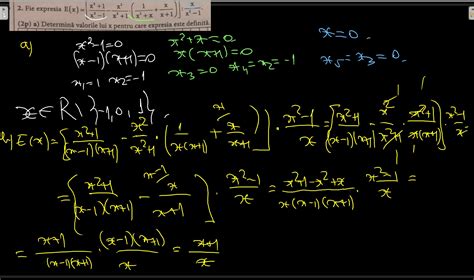 2. Fie expresia E(x) = [x²+1/x²-1 - x²/x²+1 · (1/x²+x + x/x+1)] : x/x²-1
(2p) a) Determină valorile lui x pentru care expresia este definită.
a)
x²-1=0
(x-1)(x+1)=0
x₁=1 x₂=-1
x²+x=0
x(x+1)=0
x₃=0 x₄=x₂=-1
x=0
x₅=x₃=0
x∈ℝ\{-1,0,1}
b) E(x)=[x²+1/(x-1)(x+1) - x²/x²+1 · (1/x(x+1) + x/x+1)] · x²-1/x = [x²+1/(x-1)(x+1) - x²/x²+1 · x²+1/x(x+1)] · x²-1/x
=[x²+1/(x-1)(x+1) - x/x+1] · x²-1/x = x²+1-x²+x/(x-1)(x+1) · x²-1/x =
x+1/(x-1)(x+1) · (x-1)(x+1)/x = x+1/x